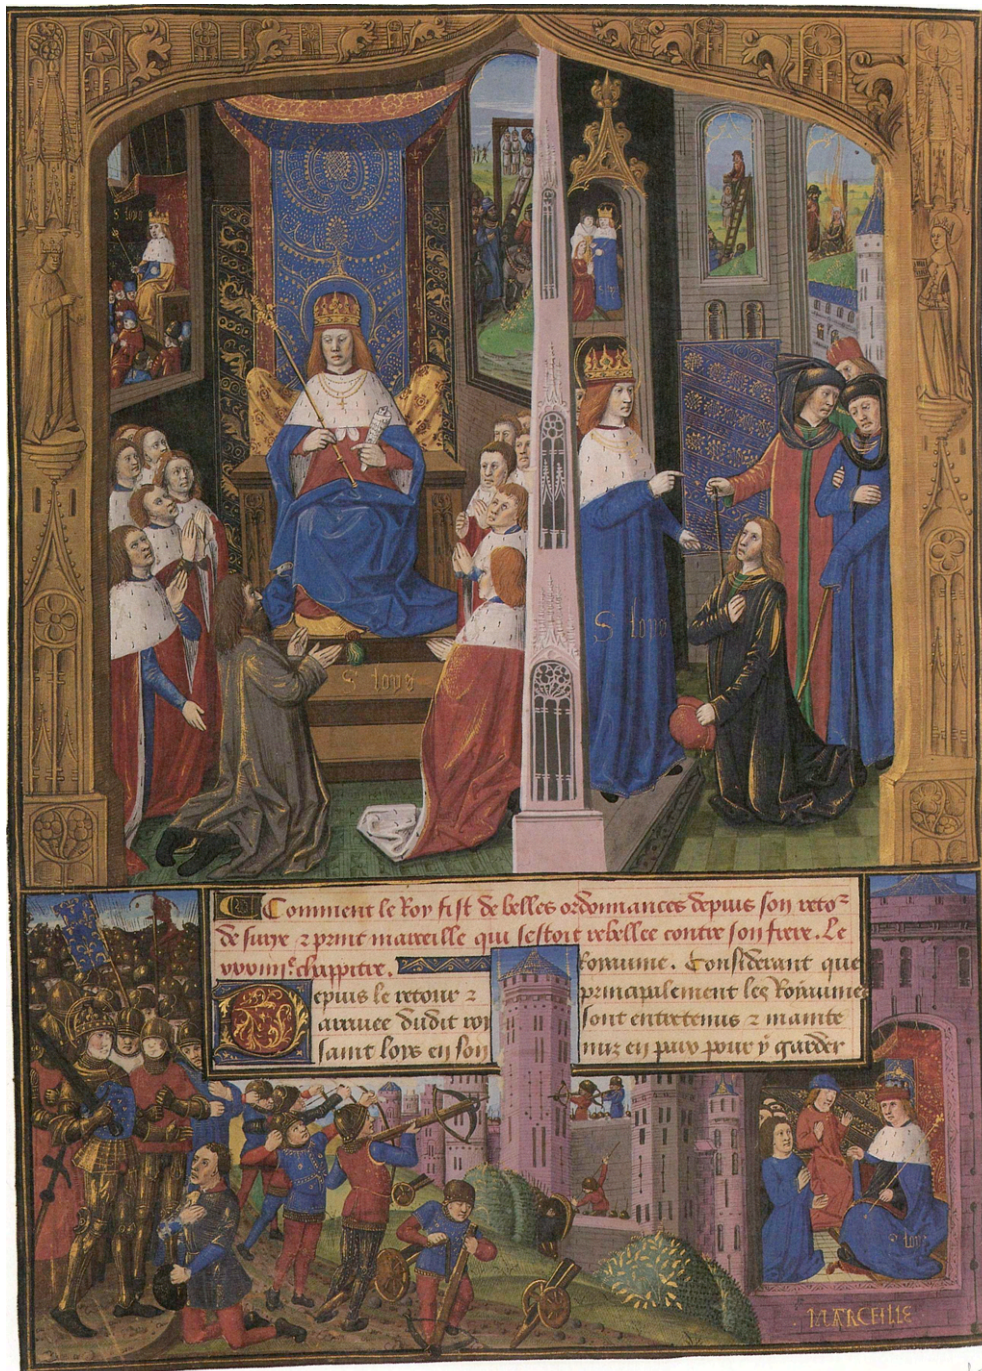 S. loys
S. loys
S. loys
Comment le Roy fist de belles ordonnances depuis son reto2
de surye 2 print marceille qui sestoit rebellee contre son frere. Le
chappitre.
epuis le retour 2
arrivee dudit roy
saint loys en son
Royaume. Considerant que
principalement les Roiaumes
sont entretenus 2 mainte
nuz en paix pour y garder
S. loys
MARCEILLE